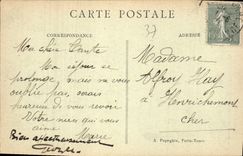 CARTE POSTALE
CORRESPONDANCE
ADRESSE
37
Ma chère Tante
Mon séjour se
prolonge, mais ne vous
oublie pas, mais
heureux de vous revoir
Votre nièce qui vous
aime Marie
Bien affectueusement
Madame
Alfroy Hay
à Henrichemont
Cher
A. Papeghin, Paris-Tours